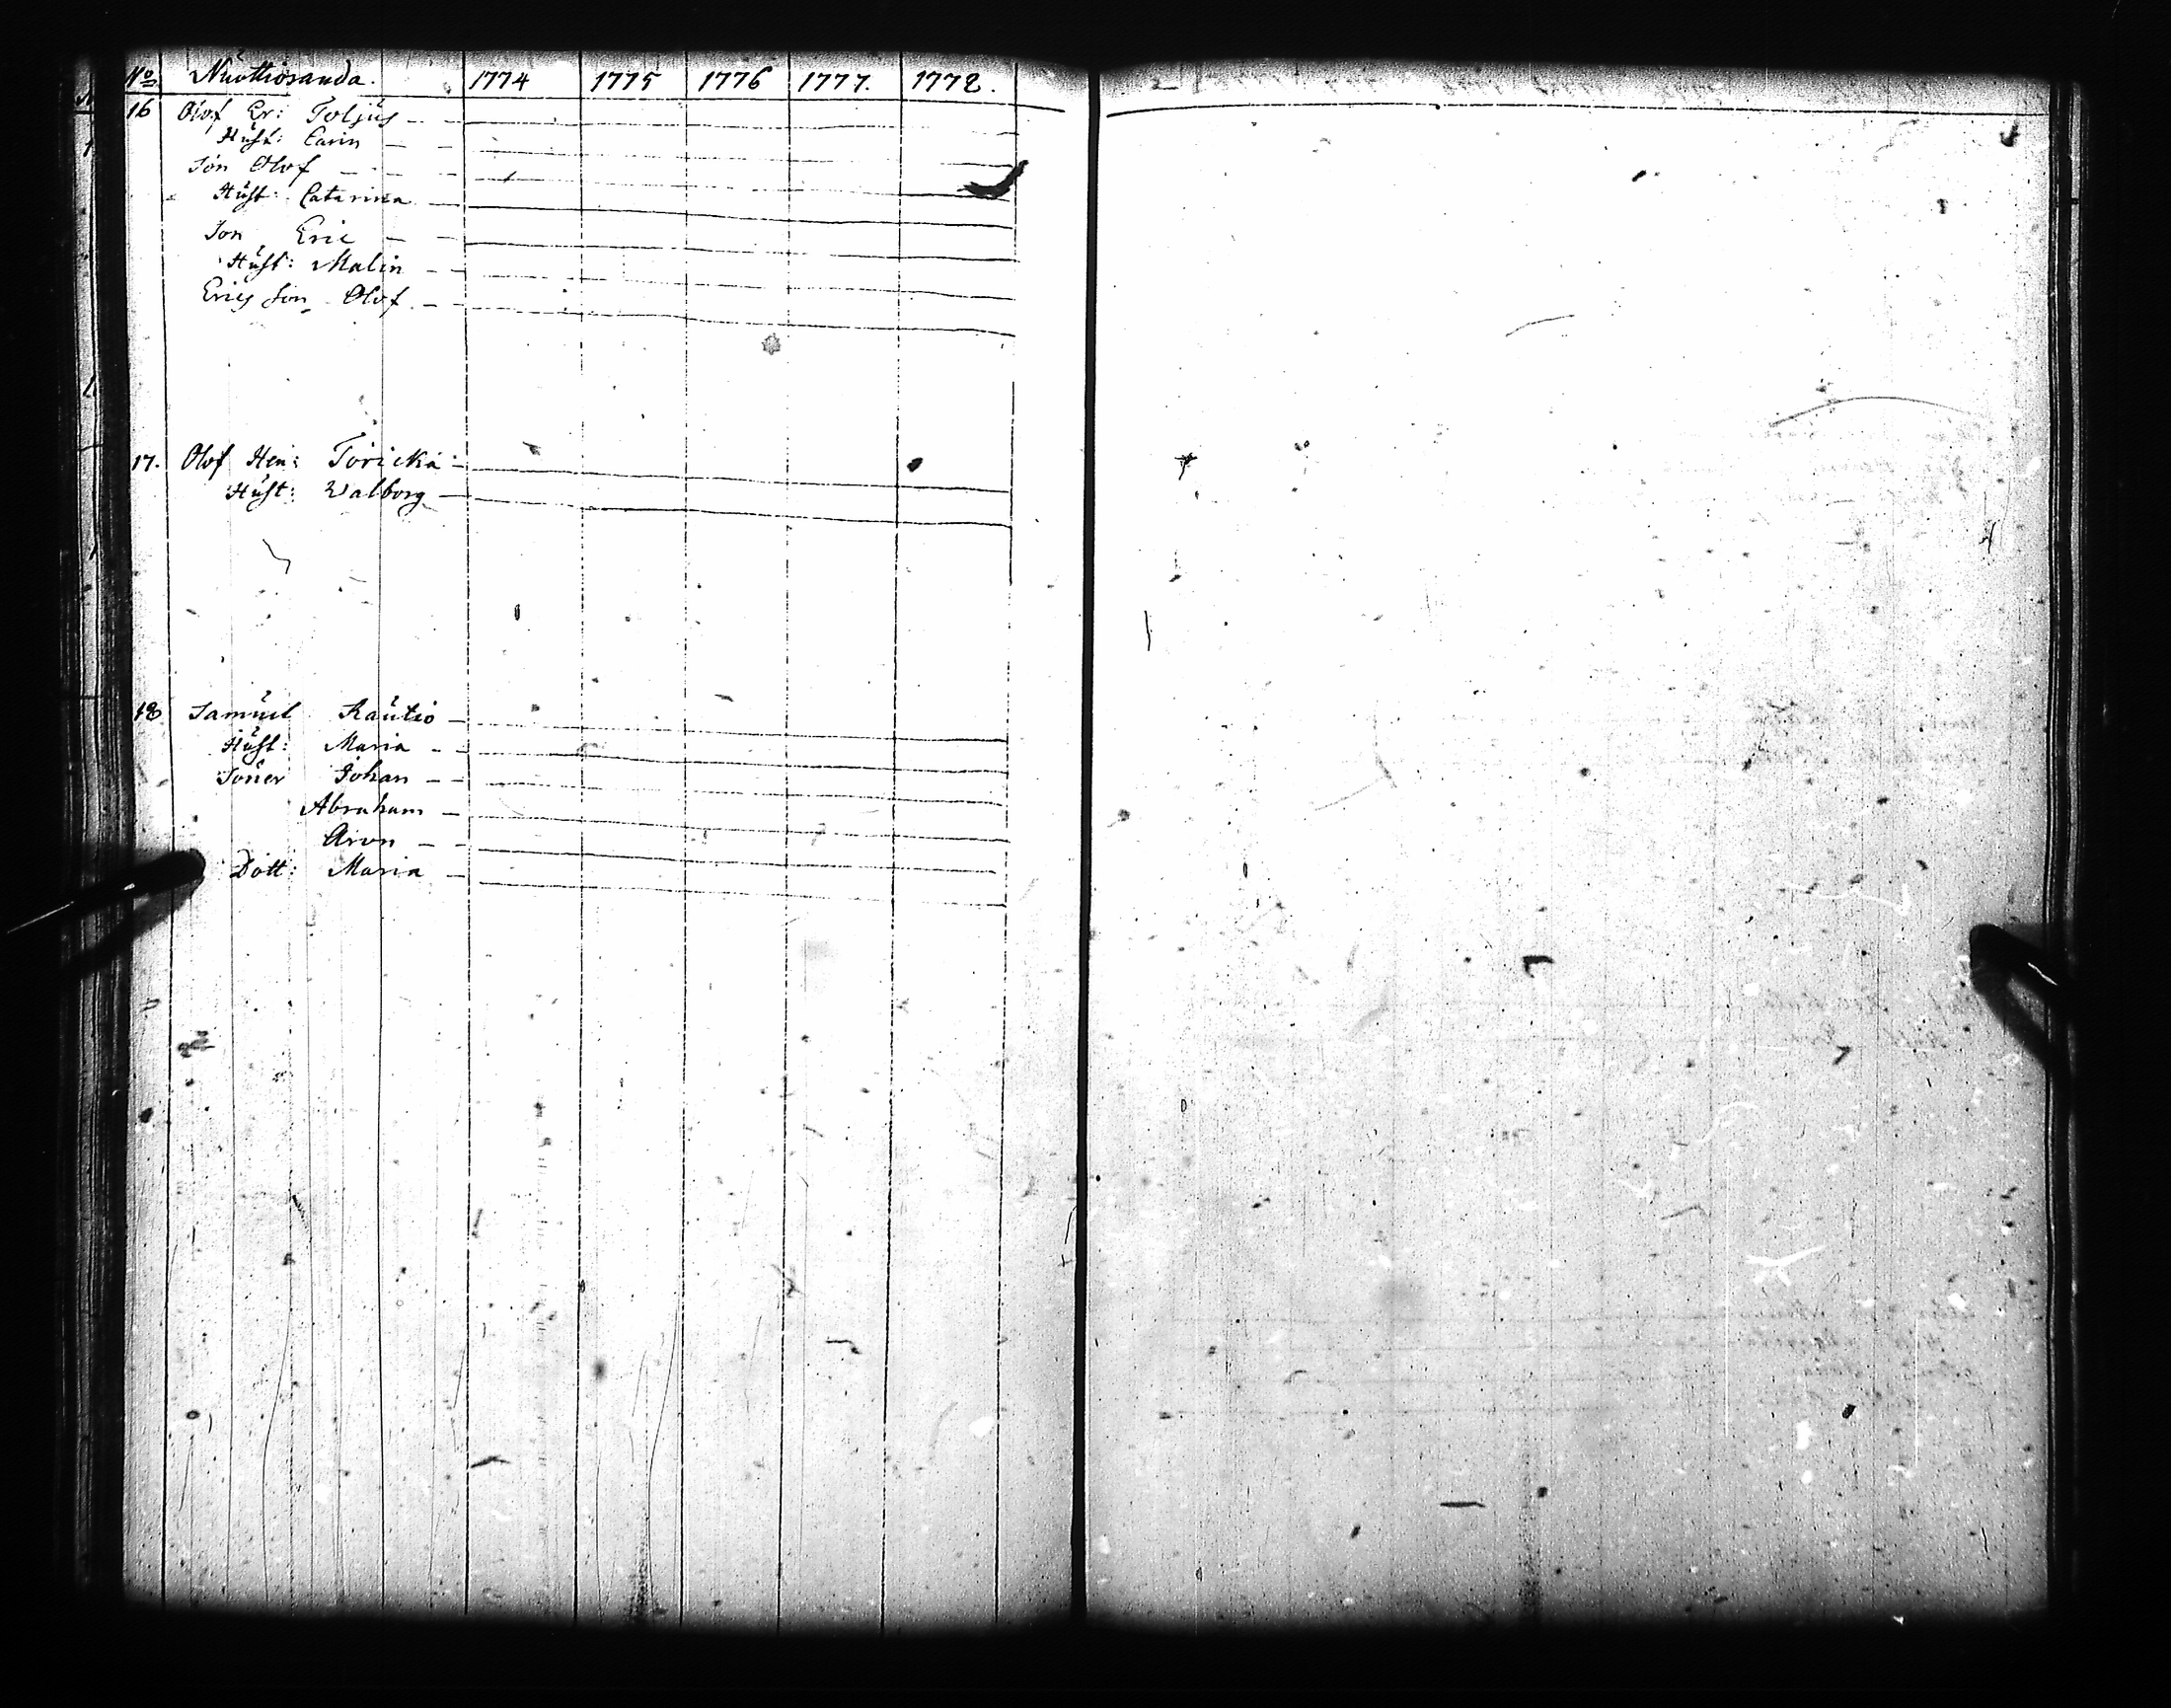 No Nuottioranda. 1774 1775 1776 1777. 1778.
16 Olof Er: Toljus
Hust: Carin
Son Olof
Hust: Catarina
Son Eric
Hust: Malin
Erics Son Olof
17. Olof Hen: Töricka
Hust: Walborg
18 Samuel Rautio
Hust: Maria
Söner Johan
Abraham
Aron
Dott: Maria